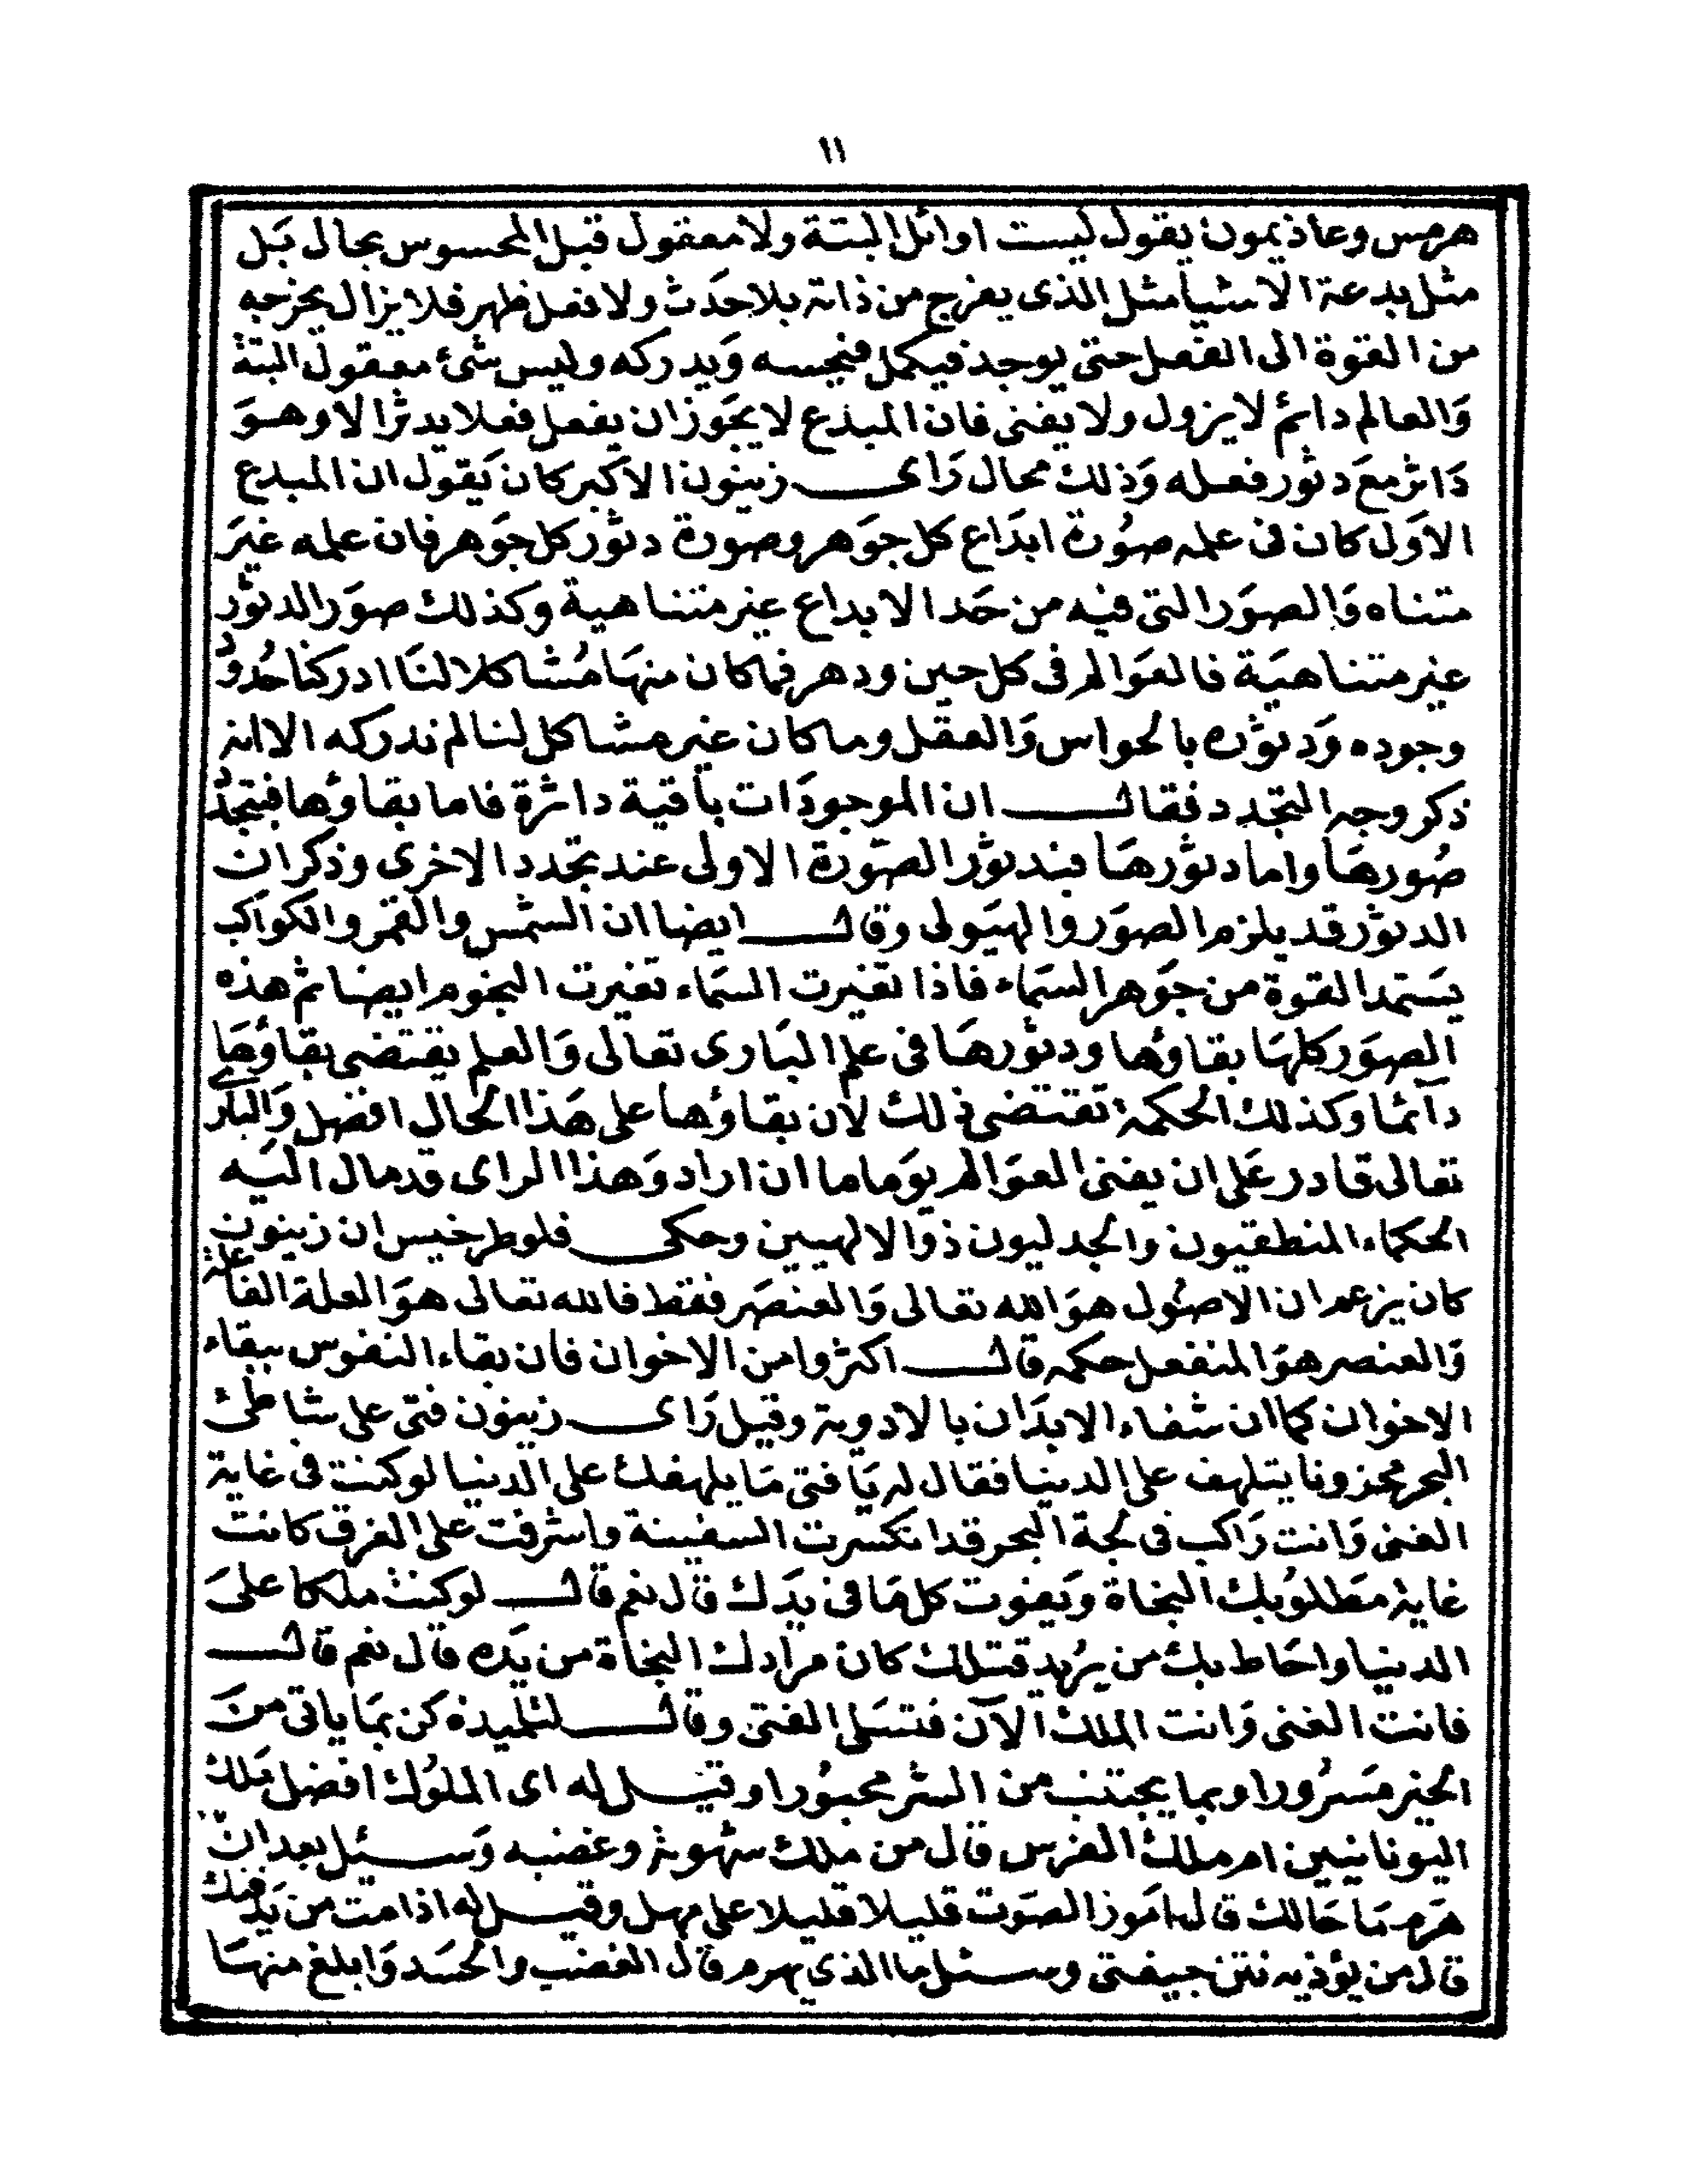 ١١
هرمس وعاذيمون يقول ليست اوائل البتة ولا معقول قبل المحسوس بحال بَل
مثل بدعة الاشيا مثل الذى يفرج من ذاته بلا حَدث ولا فعل ظهر فلا يزال يخرجه
من القوة الى الفعل حتى يوجد فيكمل فنحسه وَيدركه وليس شئ معقول البتة
وَالعالم دائم لا يزول ولا يفنى فان المبدع لا يجَوزان يفعل فعلا يدثر الا وهوَ
دَاثر معَ دثور فعله وَذلك محال رَاى زينون الاكبر كان يَقول ان المبدع
الاَول كان فى علمه صوُرة ابدَاع كل جوَهر وصورة دثور كل جوَهر فان علمه غيَر
متناه وَالصوَر التى فيه من حَد الابداع غير متناهية وكذلك صوَر الدثور
غير متناهيَة فالعوَالم فى كل حين ودهر فما كان منهَا مُشاكلا لنَا ادركنا حُدوُد
وجوده وَدثوره بالحواس وَالعقل وما كان غير مشاكل لنا لم ندركه الا انه
ذكر وجه التجدد فقال ان الموجودَات باقية داثرة فاما بقاؤها فبتجدُّد
صُورهَا واما دثورهَا فبدثور الصوّرة الاولى عند تجدد الاخرى وذكر ان
الدثور قد يلزم الصوَر والهيَولى وقال ايضا ان الشمس والقمر والكواكب
يسَتمد القوة من جوَهر السَماء فاذا تغيرت السَماء تغيرت النجوم ايضا ثم هذه
الصوَر كلهَا بقاؤها ودثورهَا فى علم البَارى تعالى وَالعلم يقتضى بقاؤهَا
دآئما وكذلك الحكمة تقتضى ذلك لان بقاؤها على هَذا الحال افضل وَالبارى
تعالى قادر عَلى ان يفنى العوَالم يوَما ما ان اراد وَهذا الراى قد مال اليَه
الحكماء المنطقيون والجدليون ذوا الالهيين وحكى فلوطرخيس ان زينون
كان يزعم ان الاصوُل هوَ الله تعالى وَالعنصَر فقط فالله تعالى هوَ العلة الفاعلة
وَالعنصر هوَ المنفعل حكمه قال اكثروا من الاخوان فان بقاء النفوس ببقاء
الاخوان كما ان شفاء الابدَان بالادوية وقيل رَاى زينون فتى على شاطئ
البحر محزونا يتلهف على الدنيا فقال له يَا فتى مَا يلهفك على الدنيا لو كنت فى غاية
الغنى وَانت رَاكب فى لجة البحر قد انكسرت السفينة واشرفت على الغرق كانت
غاية مَطلوُبك النجاة وَيفوت كل مَا فى يدَك قال نعم قال لو كنت ملكا علىَ
الدنيا واحَاط بك من يرُيد قتلك كان مرادك النجاة من يَده قال نعم قال
فانت الغنى وَانت الملك الآن فتسَلى الفتى وقال لتلميذه كن بمَا ياتى منَ
الخير مسَرُورا وبما يجتنب من الشر محبوُرا وقيل له اى الملوُك افضل مَلك
اليونانيين ام ملك الفرس قال من ملك شهوته وغضبه وَسئل بعد ان
هَرم مَا حَالك قال اموَز الصوَت قليلا قليلا على مهل وقيل له اذا مت من يَدفنك
قال من يؤذيه نتن جيفتى وسئل ما الذى يهرم قال الغضب والحسَد وَابلغ منهَا